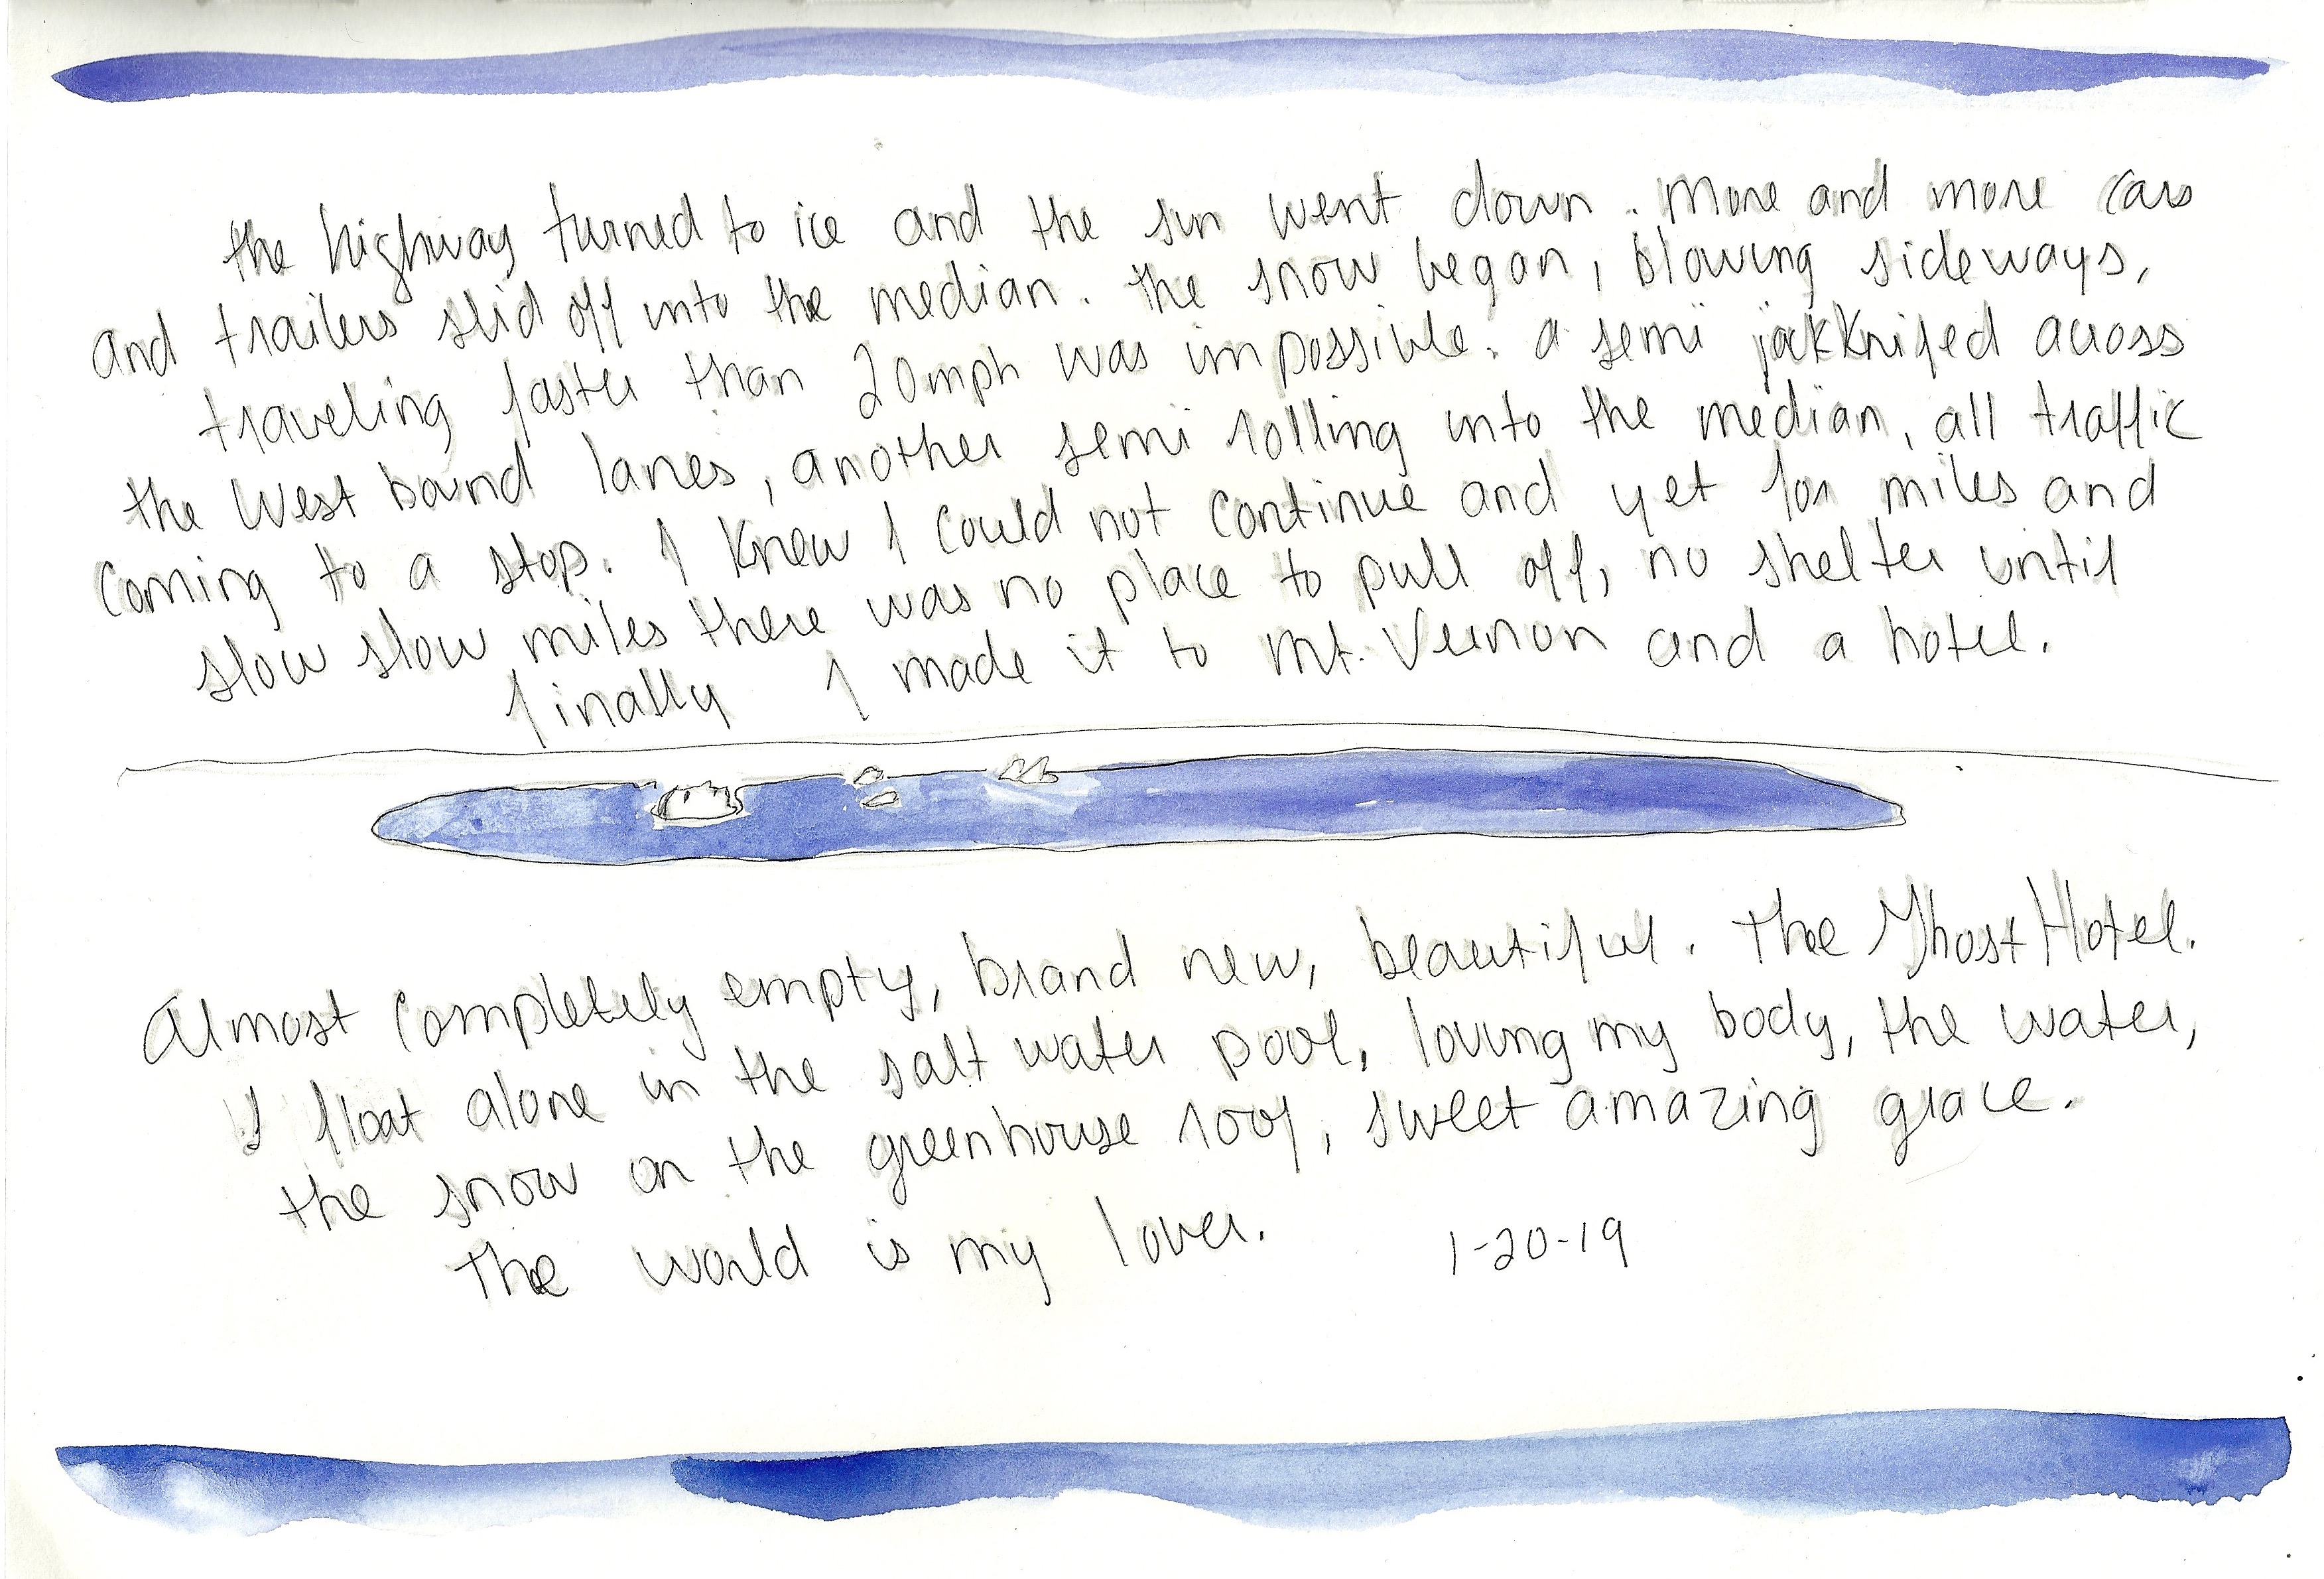 the highway turned to ice and the sun went down. More and more cars
and trailers slid off into the median. the snow began, blowing sideways,
traveling faster than 20mph was impossible. a semi jackknifed across
the West bound lanes, another semi rolling into the median, all traffic
coming to a stop. I knew I could not continue and yet for miles and
slow slow miles there was no place to pull off, no shelter until
finally I made it to Mt. Vernon and a hotel.
Almost completely empty, brand new, beautiful. The Ghost Hotel.
I float alone in the salt water pool, loving my body, the water,
the snow on the greenhouse roof, sweet amazing grace.
The world is my lover. 1-20-19